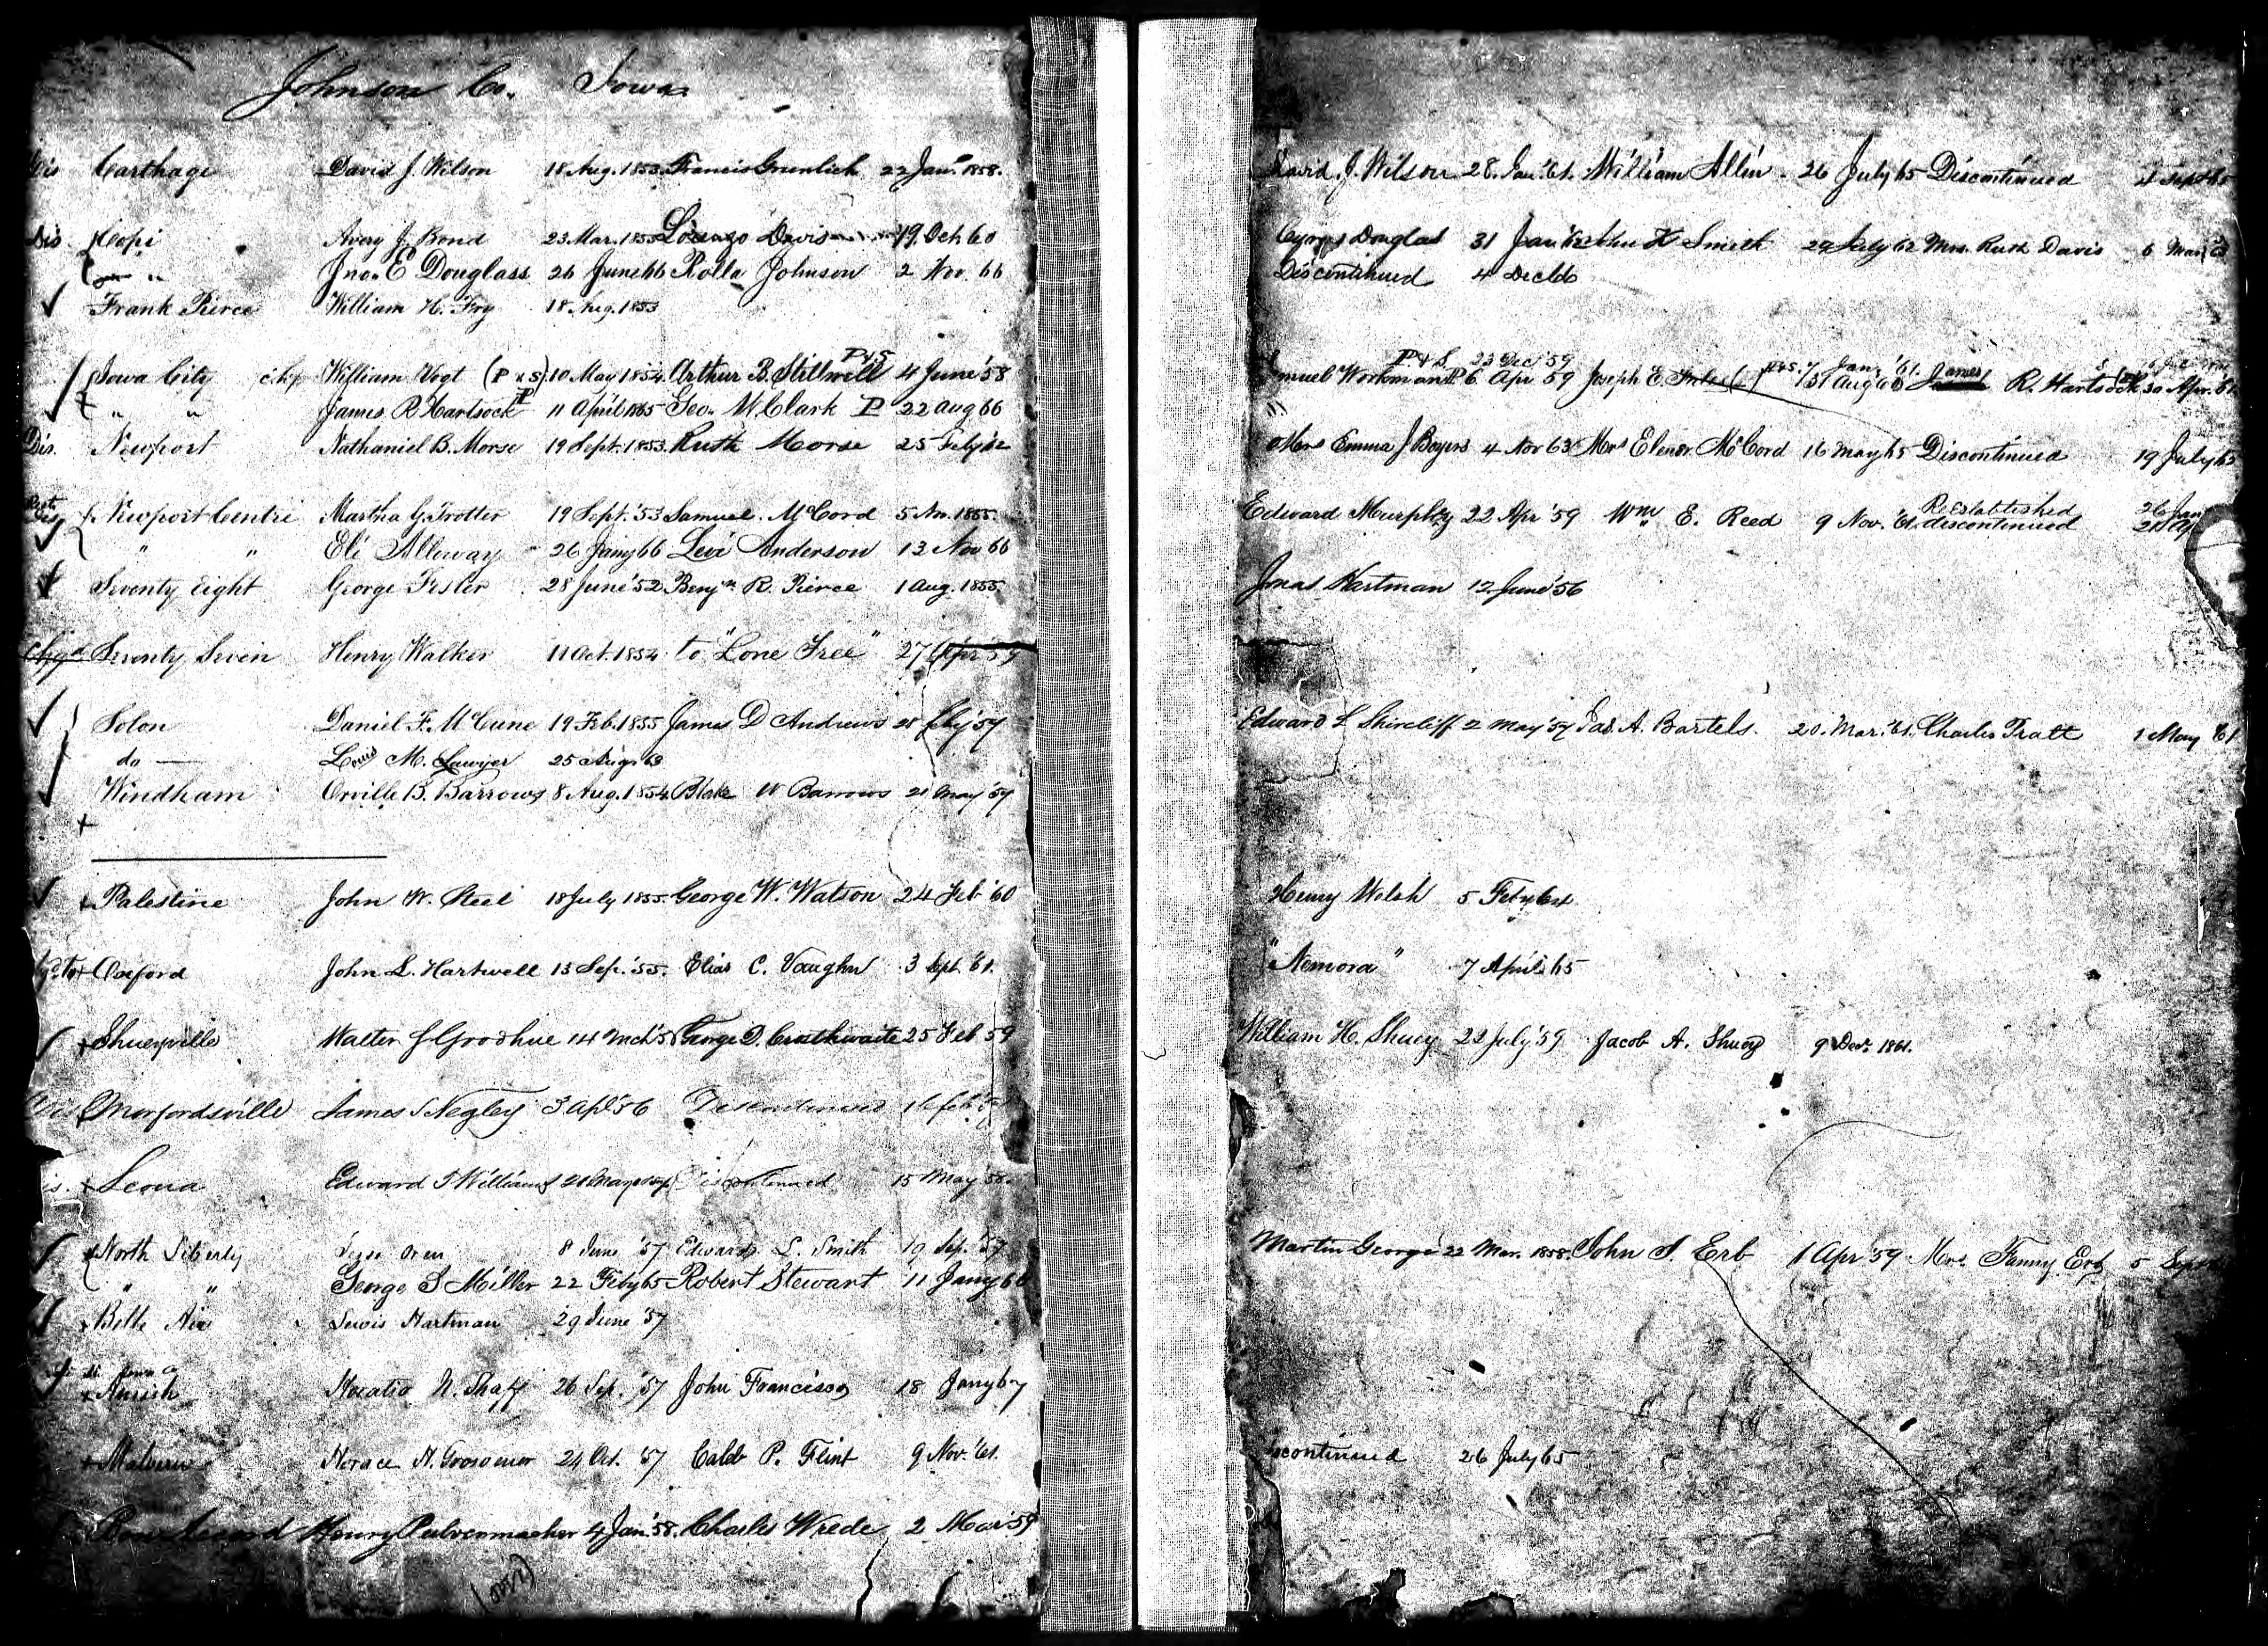 Johnson Co. Iowa
Dis Carthage David J. Wilson 18 Aug. 1853. Francis Greenlich 22 Jan. 1858. David. J. Wilson 28. Jan. '61. William Allin 26 July 65 Discontinued 4 Sept 65
Dis Kopi Avery J. Bond 23 Mar. 1855 Lorenzo Davis 19. Oct 60 Douglas 31 Jan '62 John H Smith 29 July 62 Mrs. Ruth Davis 6 Mar 63
" Jno. E Douglass 26 June 66 Rolla Johnson 2 Nov. 66 Discontinued 4 Dec 66
Frank Pierce William H. Fry 18 Aug. 1853
Iowa City c.h. William Vogt (P & S) 10 May 1854. Arthur B. Stillwell P & S 4 June '58 Workman P & S 23 Dec '59 6 Apr 59 Joseph E. 31 Aug 60 James R. Hartsock 30 Apr. 61
" " James R Hartsock P 11 April 1865 Geo. W. Clark P 22 Aug 66
Dis. Newport Nathaniel B. Morse 19 Sept. 1853. Ruth Morse 25 Feby 62 Mrs Emma J Boyers 4 Nov 63 Mrs Elenor McCord 16 May 65 Discontinued 19 July 65
Newport Centre Martha G. Trotter 19 Sept. '53 Samuel. McCord 5 1855. Edward Murphy 22 Apr '59 Wm E. Reed 9 Nov. '61. discontinued Reestablished 26 Jan
" " Eli Alloway 26 Jany 66 Levi Anderson 13 Nov 66
Seventy Eight George Fesler 28 June '52 Benjn R. Pierce 1 Aug. 1855. Jonas Hartman 12 June '56
Chgd Seventy Seven Henry Walker 11 Oct. 1854. to "Lone Tree" 27 Apr '59
Solon Daniel F. McCune 19 Feb. 1855 James D Andrews 28 Feby '57 Edward L Shircliff 2 May '57 Jas. A. Bartels. 20. Mar. '61. Charles Pratt 1 May '61
do — Louis M. Sawyer 25 Aug 63
Windham Orville B. Barrows 8 Aug. 1854. Blake W Barrows 21 May '57
Palestine John W. Steel 18 July 1855. George W. Watson 24 Feb '60 Henry Welsh 5 Feby 64
Oxford John L. Hartwell 13 Sep. '55. Elias C. Vaughn 3 Sept. '61. "Nemora" 7 April 65
Shueyville Walter J Goodhue 14 Mch '56 George D. Crosthwaite 25 Feb 59 William H. Shuey 22 July '59 Jacob A. Shuey 9 Decr 1861.
Morfordsville James S Negley 3 Apl '56 Discontinued 16 Feb
Leona Edward T Williams 21 May Discontinued 15 May '58.
North Liberty Jesse Oren 8 June '57 Edward L. Smith 19 Sep. '57 Martin George 22 Mar. 1858. John S. Erb 1 Apr '59 Mrs. Fanny Erb 5 Sept
" " George S Miller 22 Feby 65 Robert Stewart 11 Jany 66
Belle Air Lewis Hartman 29 June '57
Amish Horatio N. Shaff 26 Sep. '57 John Francisco 18 Jany 67
Malvern Horace H. Grosvenor 24 Oct. '57 Caleb P. Flint 9 Nov. '61. continued 26 July 65
Henry Pulvermacher 4 Jan. '58. Charles Wrede 2 Mar '59
(over)